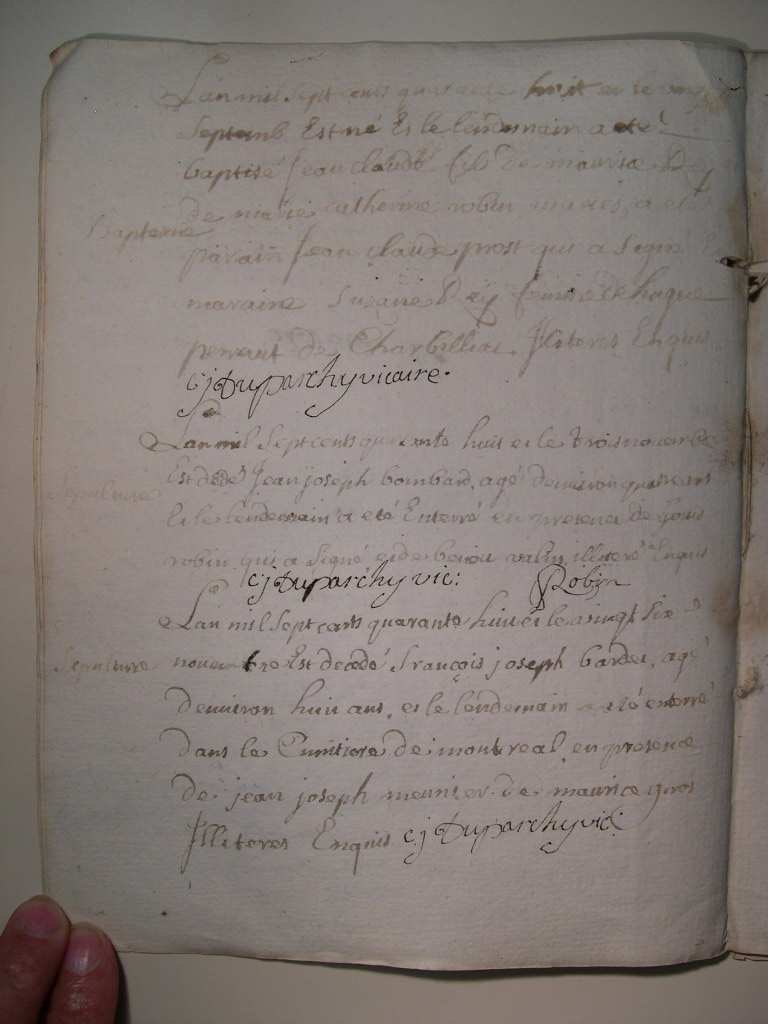 Lan mil sept cents quarante huit et le
Septemb Est né Et le lendemain a eté
baptisé Jean claude fils de maurice Rey
de marie catherine robin mariés, a eté
Bapteme
parain Jean claude prost qui a signé
maraine Suzane Rey femme de
perraut de Charbillat. Illiteres Enquis
cj Duparchy vicaire.
Lan mil sept cents quarante huit et le trois novembre
Est decedé Jean joseph bombard, agé denviron quatre ans
Sepulture
Et le lendemain a eté Enterré en presence de
robin qui a signé et de valin illiteré Enquis
cj Duparchy vic: Robin
Lan mil sept cents quarante huit et le vingt six
Sepulture
novembre Est decedé françois joseph bardet, agé
denviron huit ans, et le lendemain a eté enterré
dans le Cimitiere de montreal en presence
de jean joseph meunier de maurice gros
Illiteres Enquis cj Duparchy vic: